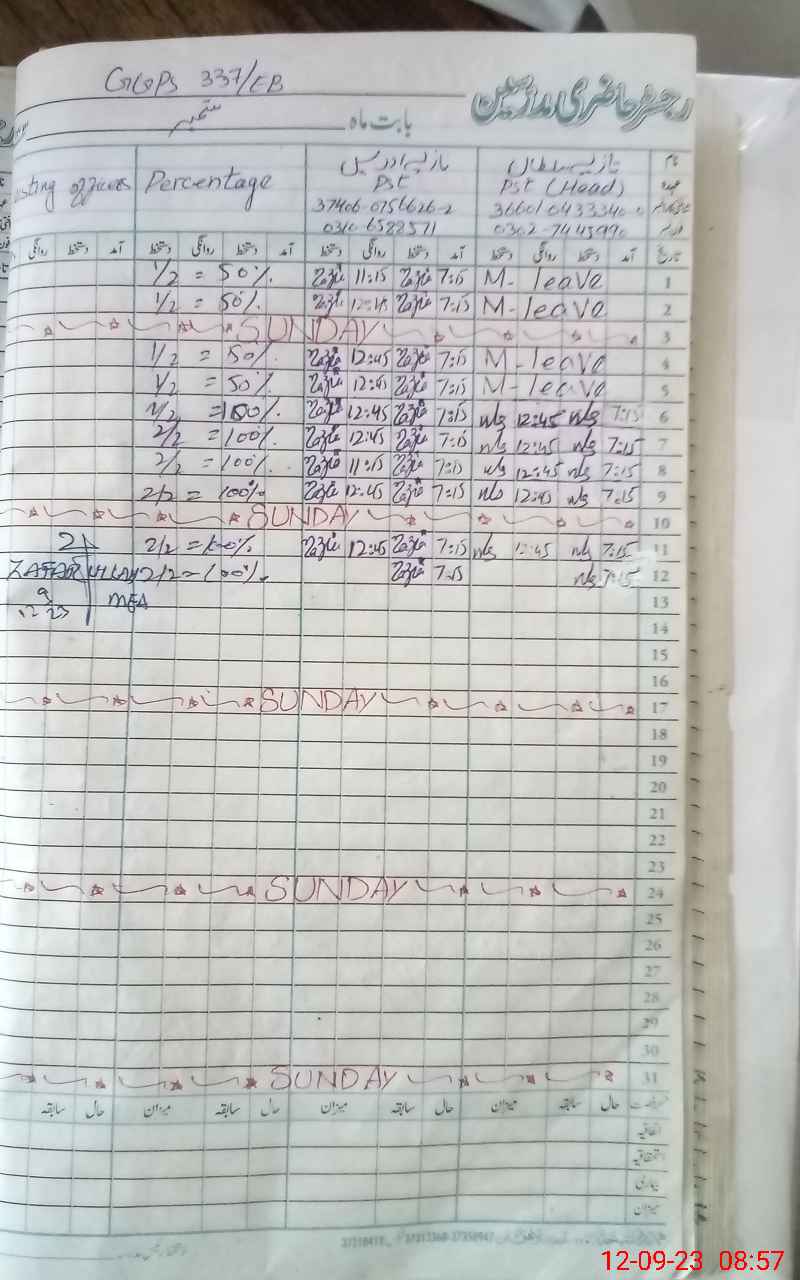 GGPS 337/EB
رجسٹر حاضری مدرسین
بابت ماہ ستمبر
نام نازیہ سلطان نازیہ ادریس Percentage
Pst (Head) Pst
36601 0433340-0 37406-0756626-2
0302-7445990 0310-6588571
تاریخ آمد دستخط روانگی دستخط آمد دستخط روانگی دستخط آمد دستخط روانگی دستخط آمد دستخط روانگی
1/2 = 50% 11:15 7:15 M-leave 1
1/2 = 50% 12:45 7:15 M-leave 2
SUNDAY 3
1/2 = 50% 12:45 7:15 M-leave 4
1/2 = 50% 12:45 7:15 M-leave 5
2/2 = 100% 12:45 7:15 12:45 7:15 6
2/2 = 100% 12:45 7:15 12:45 7:15 7
2/2 = 100% 11:15 7:15 12:45 7:15 8
2/2 = 100% 12:45 7:15 12:45 7:15 9
SUNDAY 10
2/2 = 100% 12:45 7:15 12:45 7:15 11
ZAFAR ULLAH 2/2 = 100% 7:15 7:15 12
MEA 13
14
15
16
SUNDAY 17
18
19
20
21
22
23
SUNDAY 24
25
26
27
28
29
30
SUNDAY 31
رخصت حال سابقہ میزان حال سابقہ میزان حال سابقہ میزان حال سابقہ
اتفاقیہ
استحقاقیہ
بیماری
میزان
12-09-23 08:57